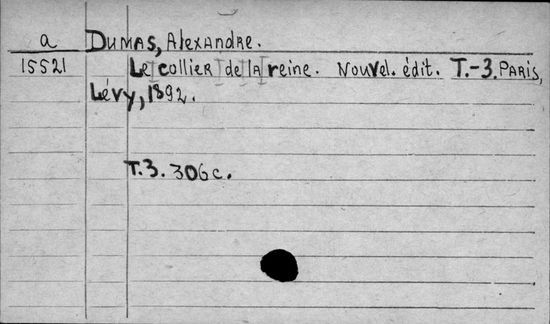 a DUMAS, Alexandre.
15521 Le collier de la reine. Nouvel. édit. T.-3. PARIS,
Lévy, 1892.
T.3. 306 c.